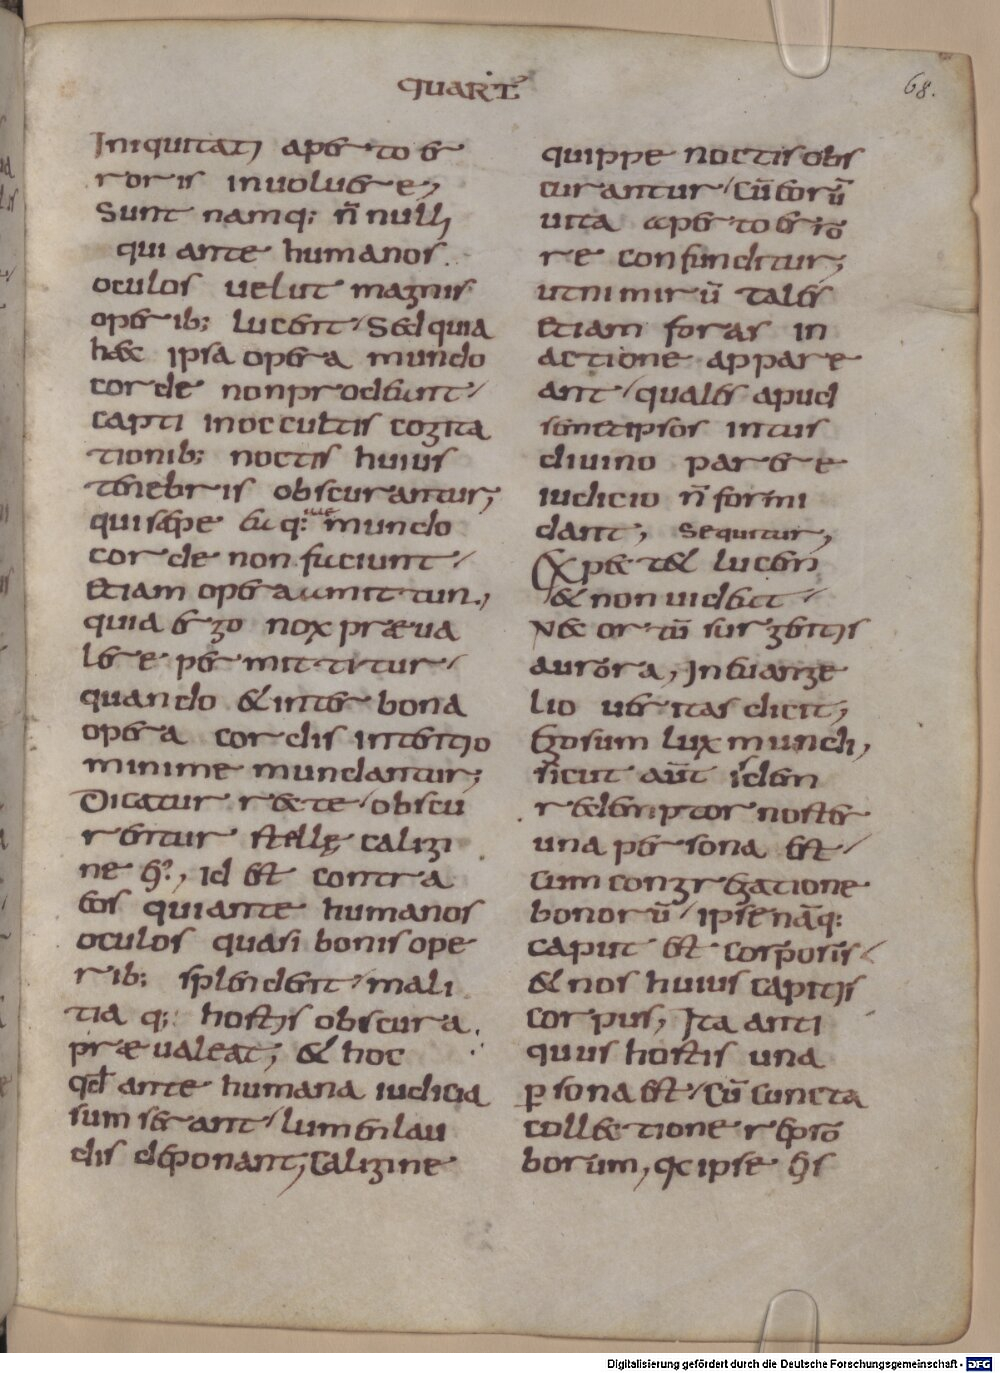 QUART̄
68.
Iniquitati aperto er
roris inuoluere;
Sunt namq; n̄ nulli
qui ante humanos
oculos uelut magnis
operib; lucent / Sed quia
haec ipsa opera mundo
corde non prodeunt /
capti in occultis cogita
tionib; noctis huius
tenebris obscurantur;
qui saepe q; mundo
corde non fiunt /
etiam opera amittun.,
quia ergo nox præua
lere permittitur /
quando & inter bona
opera cordis intentio
minime mundantur;
Dicatur recte / obscu
rentur stellę caligi
ne ei', id est contra
eos qui ante humanos
oculos quasi bonis ope
rib; splendent / mali
tia q; hostis obscura
præualeat; & hoc
qđ ante humana iudicia
sumserant / lumen lau
dis deponant, Caligine
quippe noctis obs
curantur / cū eorū
uita aperto errō
re confunditur;
ut nimirū tales
etiam foras in
actione appare
ant / quales apud
semetipsos intus
diuino parere
iudicio n̄ formi
dant; Sequitur,
Expectet lucem
& non uideat /
Nec ortū surgentis
aurorae, In euange
lio ueritas dicit;
Ego sum lux mundi,
sicut aūt isdem
redemptor noster
una persona est /
cum congregatione
bonorū / ipse nāq;
caput est corporis /
& nos huius capitis
corpus, Ita anti
quus hostis una
ꝑsona est / Cū cuncta
collectione reprō
borum, qc ipse eis